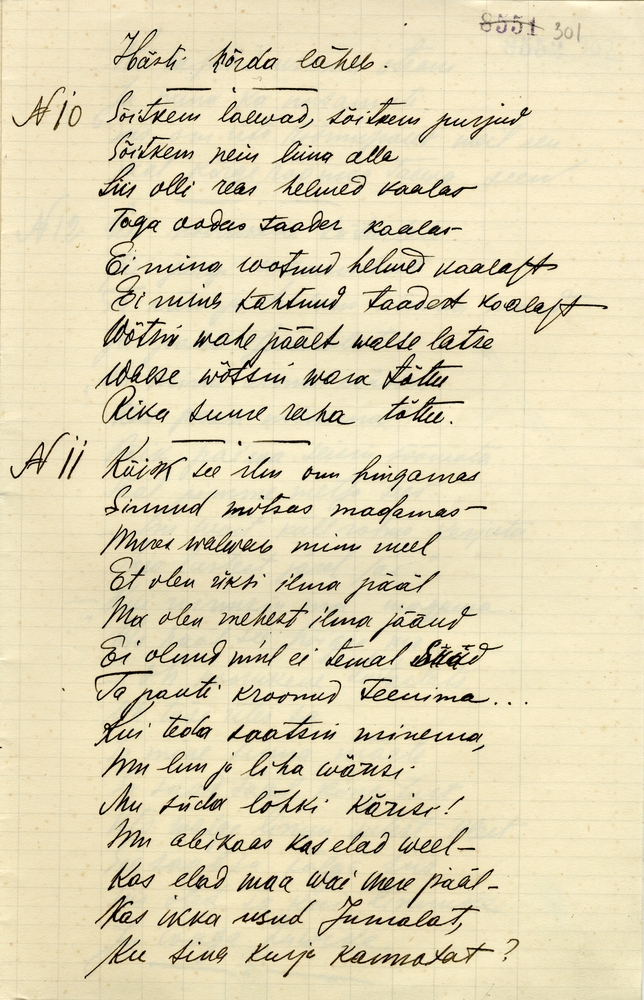 8551 301
Hästi kõrda läheb.
N 10 Sõitsem laewad, sõitsem purjud
Sõitsem nein linna alla
Siis olli reas helmed kaalas
Taga oodas taader kaalas
Ei mina wotnud helmed kaalast
Ei mina kahtnud taadert kaalast
Wõtsin wahe päält waese latse
Waese wõtsin wara tõttu
Rika suure raha tõttu.
N 11 Kõik see ilm on hingamas
Linnud mõtsas magamas
Mures walwab minu meel
Et olen üksi ilma pääl
Ma olen mehest ilma jäänd
Ei olnud minl ei temal sääd
Ta pandi kroonud teenima...
Kui teda saatsin minema,
Mu luu ja liha wärisi
Mu süda lõhki kärisi!
Mu abikaas kas elad weel
Kas elad maa wai mere pääl
Kas ikka usud Jumalat,
Ku sina kurja kannatat?